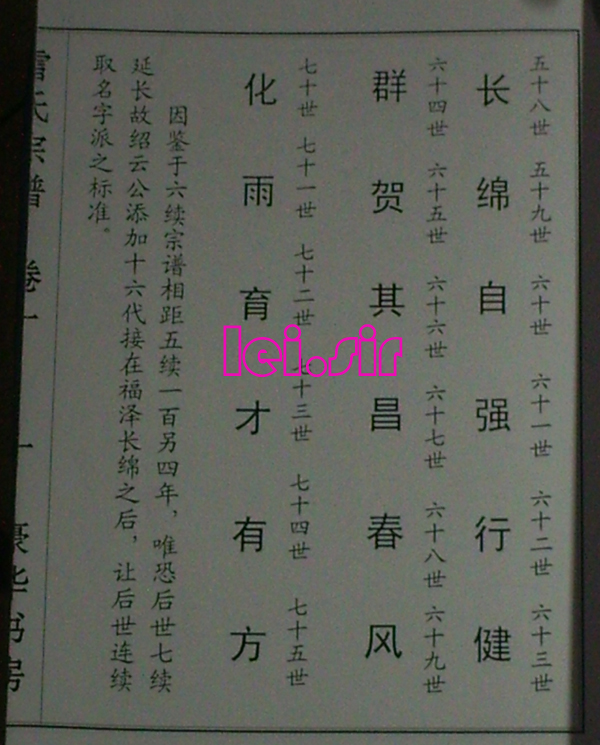 五十八世 五十九世 六十世 六十一世 六十二世 六十三世
长 绵 自 强 行 健
六十四世 六十五世 六十六世 六十七世 六十八世 六十九世
群 贺 其 昌 春 风
七十世 七十一世 七十二世 七十三世 七十四世 七十五世
化 雨 育 才 有 方
因鉴于六续宗谱相距五续一百另四年，唯恐后世七续
延长故绍云公添加十六代接在福泽长绵之后，让后世连续
取名字派之标准。
雷氏宗谱 卷一 一 豪华书房
lei.sir